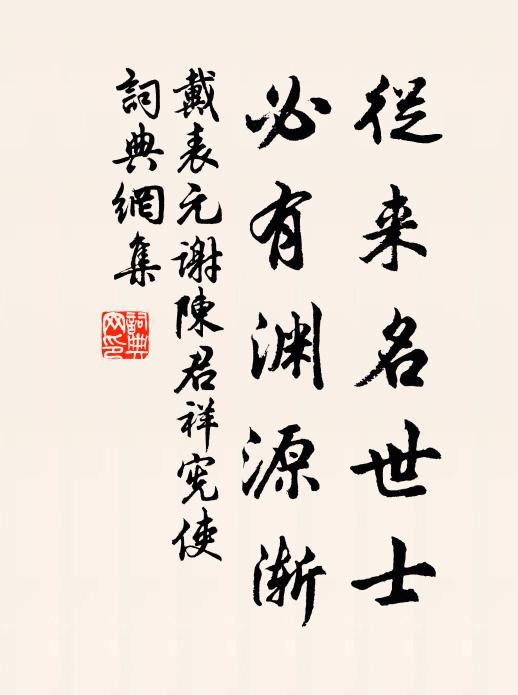 從来名世士
必有渊源漸
戴表元謝陳君祥憲使
詞典網集
詞典网印